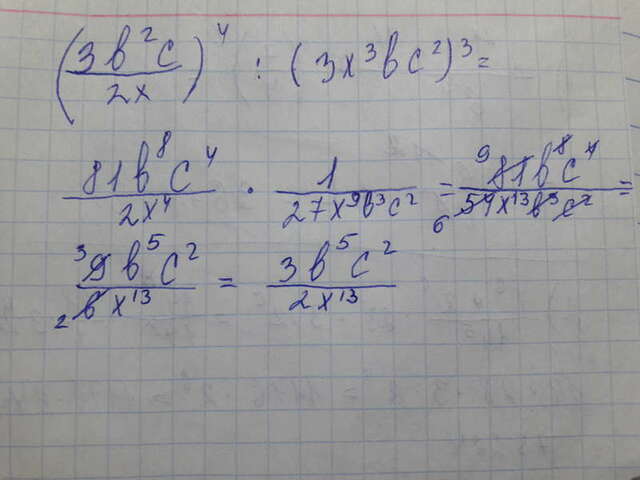 (3b²c/2x)⁴ : (3x³bc²)³ =
81b⁸c⁴/2x⁴ · 1/27x⁹b³c² = ⁹81b⁸c⁴/₆54x¹³b³c² =
³9b⁵c²/₂6x¹³ = 3b⁵c²/2x¹³